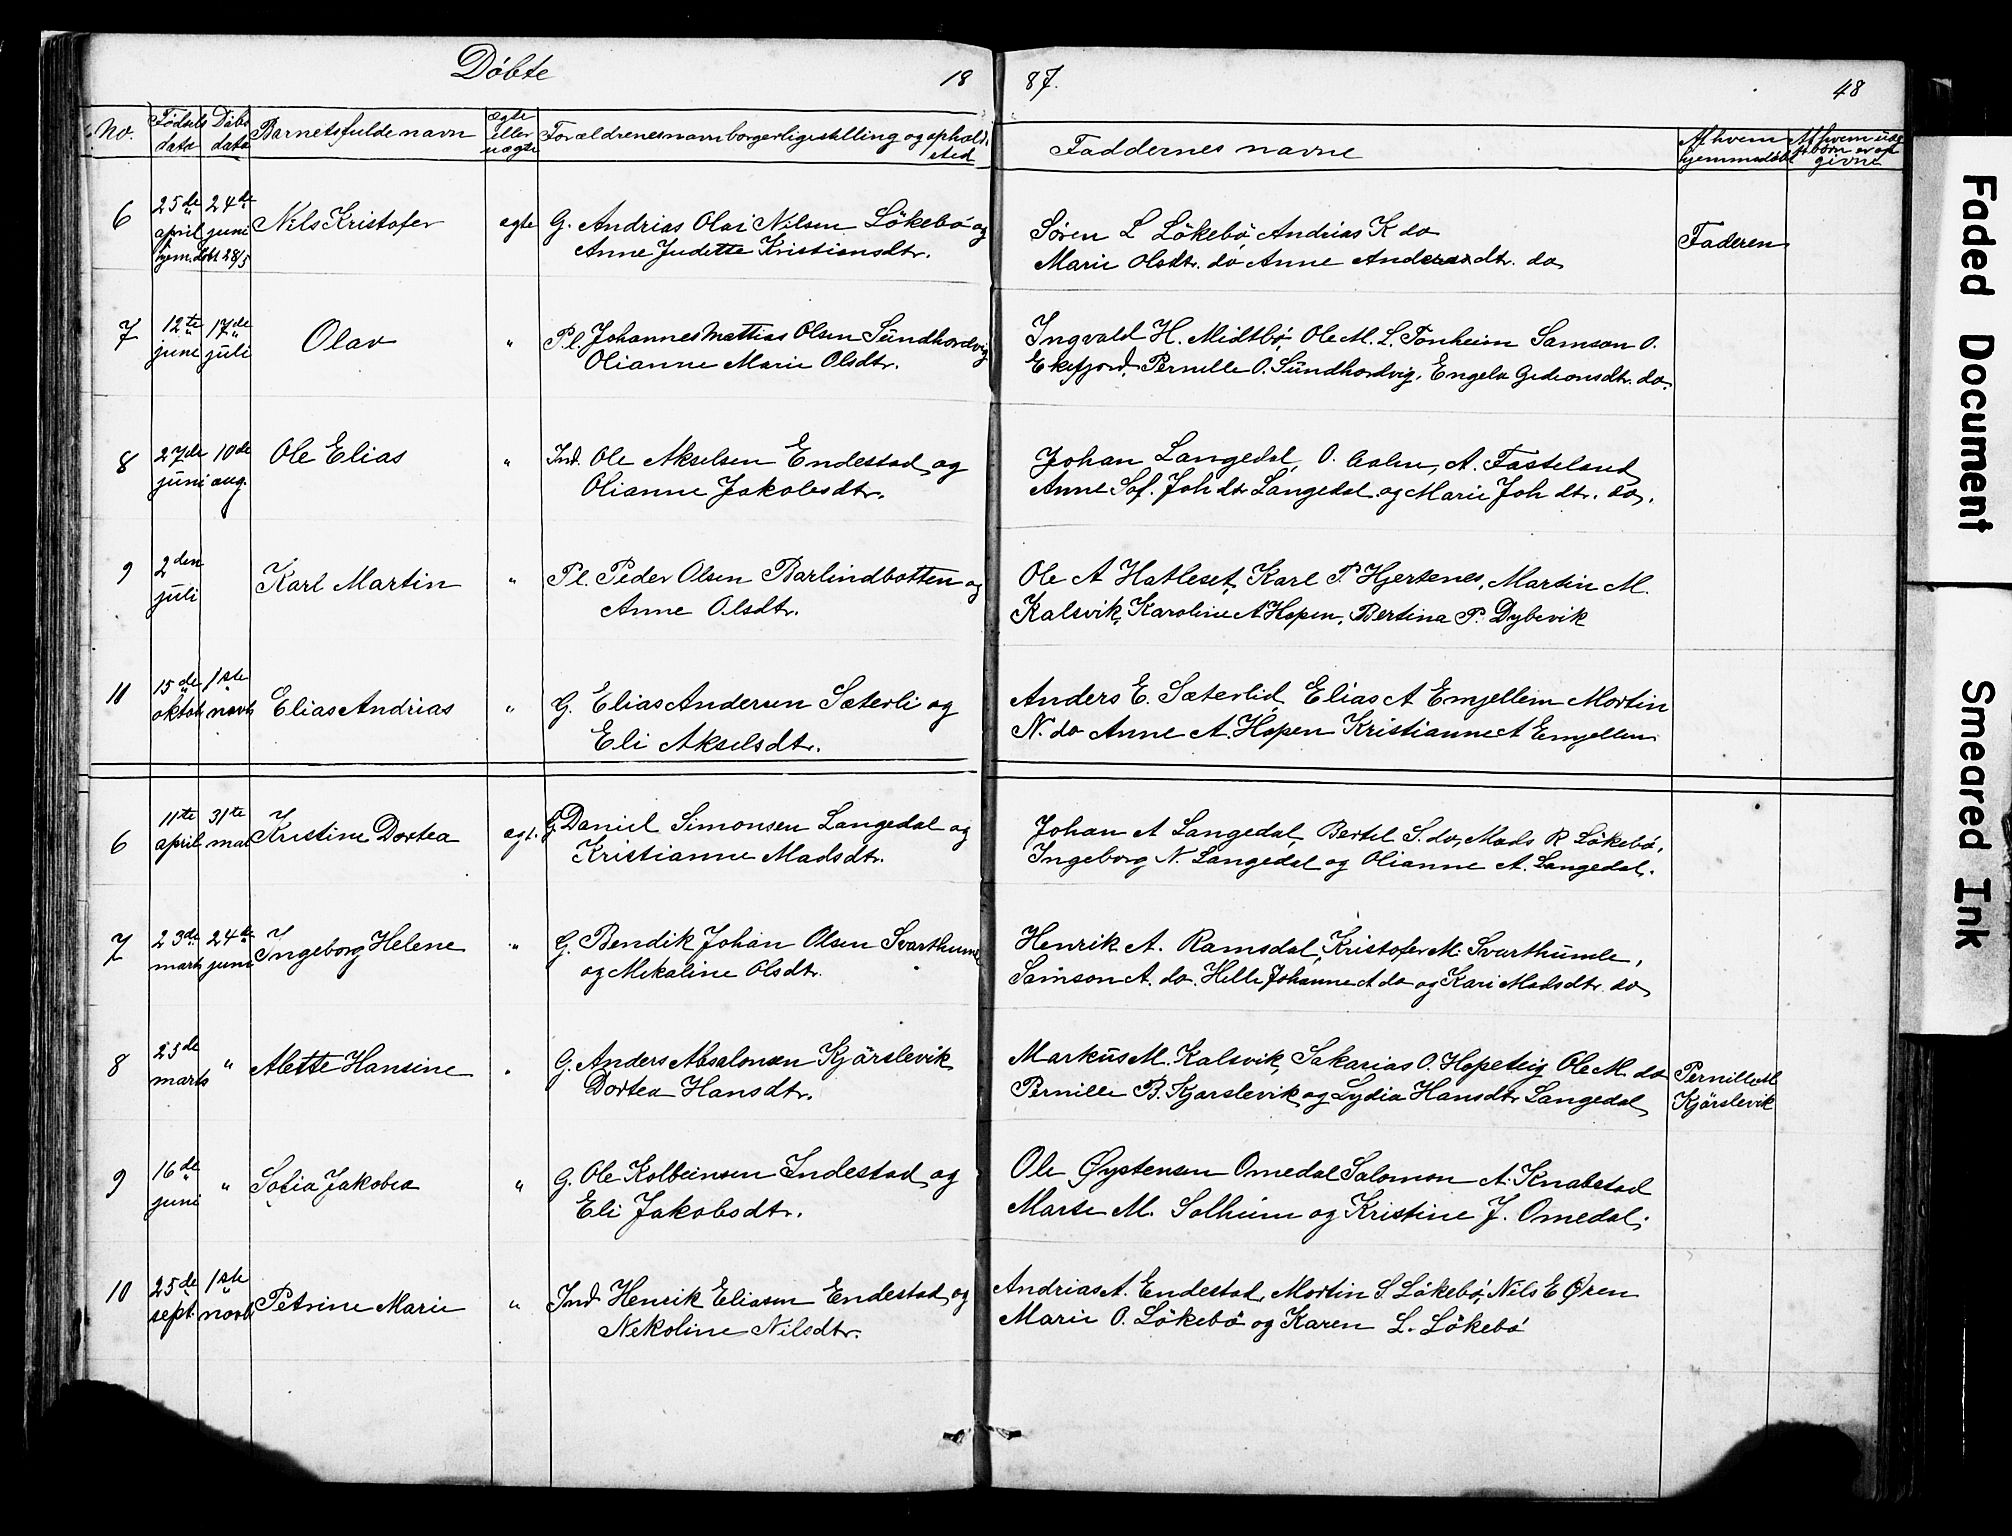 Döbte 1887. 48
No. Fødsels data Döbs data Barnets fulde navn ægte eller uægte Forældrenes navn borgerlige stilling og opholdssted Faddernes navne Af hvem hjemmedøbt Af hvem uægte børn er op givne
6 25de april hjem.döbt 28/5 24de juni Nils Kristofer egte G. Andrias Olai Nilsen Lökebö og
Anne Judette Kristiansdtr.
Søren L Lökebö, Andrias K do
Marie Olsdtr. do Anne Andersdtr. do
Faderen
7 12te juni 17de juli Olav " Pl. Johannes Mattias Olsen Sundhordvig
Olianne Marie Olsdtr.
Ingvald H. Midtbö, Ole M. L. Tonheim Samson O.
Ekefjord, Pernille O. Sundhordvig, Engela Gedionsdtr. do.
8 27de juni 10de aug. Ole Elias " Ind. Ole Akselsen Endestad og
Olianne Jakobsdtr.
Johan Langedal, O. Aalen, A. Fasteland
Anne Sof. Joh dtr Langedal og Marie Joh dtr. do.
9 2den juli Karl Martin " Pl. Peder Olsen Barlindbotten og
Anne Olsdtr.
Ole A Hatleset, Karl P. Hjertenes, Martin M.
Kalsvik, Karoline A Hopen, Bertina P. Dybevik
11 15de oktob 1ste novb Elias Andrias " G. Elias Andersen Sæterli og
Eli Akselsdtr.
Anders E. Sæterlid, Elias A Emjellem Mortin
N. do Anne A. Hopen Kristianne A Emjellem
6 11te april 31te mai Kristine Dortea egt. G Daniel Simonsen Langedal og
Kristianne Madsdtr.
Johan A Langedal, Bertel S. do, Mads R Lökebö,
Ingeborg N. Langedal og Olianne A. Langedal.
7 23de marts 24de juni Ingeborg Helene " G. Bendik Johan Olsen Svarthumle
og Mikaline Olsdtr.
Henrik A. Ramsdal, Kristofer M. Svarthumle,
Samson A. do. Helle Johanne A do og Kari Madsdtr. do
8 25de marts " Alette Hansine . G. Anders Absalonsen Kjörslevik
Dortea Hansdtr.
Markus M. Kalsvik, Sakarias O. Hopeteig Ole M. do
Pernille B. Kjörslevik og Lydia Hansdtr Langedal
Pernille M
Kjörslevik
9 16de juni " Sofia Jakobea " G. Ole Kolbeinsen Indestad og
Eli Jakobsdtr.
Ole Øystensen Omedal Salomon A. Knabstad
Marte M. Solheim og Kristine J. Omedal.
10 25de sept. 1ste novb Petrine Marie " Ind Henrik Eliasen Endestad og
Nekoline Nilsdtr.
Andrias A. Endestad, Mortin S Lökebö, Nils E Øren
Marie O. Lökebö og Karen L. Lökebö
Faded Document
Smeared Ink